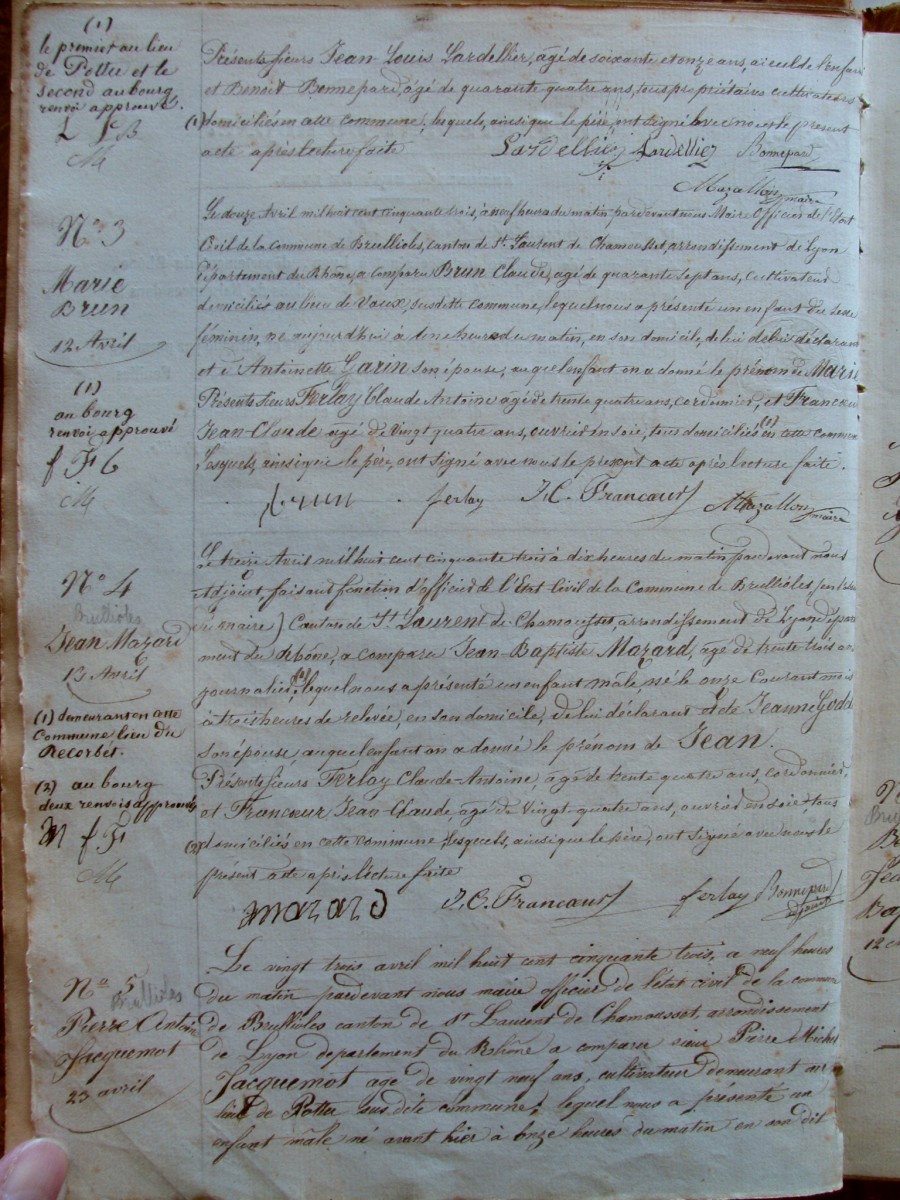 (1)
le premier au lieu
de Pottu et le
second au bourg
renvoi approuvé.
L J B
M
Présents sieurs Jean Louis Lardellier, agé de soixante et onze ans, aieul de l'enfant
et Benoit Bonnepard, agé de quarante quatre ans, tous propriétaires cultivateurs
(1) domiciliés en cette commune, lesquels, ainsi que le père, ont signé avec nous le présent
acte après lecture faite Lardellier Lardellier Bonnepard
Mazallon maire
N° 3
Marie
Brun
12 Avril
(1)
au bourg
renvoi approuvé
f F b
M
Le douze Avril mil huit cent cinquante trois, à neuf heures du matin, pardevant nous Maire Officier de l'Etat
Civil de la Commune de Brullioles, canton de St. Laurent de Chamousset, arrondissement de Lyon
département du Rhône, a comparu Brun Claude, agé de quarante sept ans, cultivateur
domiciliés au lieu de Vaux, susdette commune, lequel nous a présenté un enfant du sexe
féminin, né aujourd'hui à heures du matin, en son domicile, de lui déclarant
et d'Antoinette Garin son épouse, auquel enfant on a donné le prénom de Marie
Présents sieurs Ferlay Claude Antoine agé de trente quatre ans, cordonnier, et Francoeur
Jean-Claude agé de vingt quatre ans, ouvrier en soie, tous domiciliés (1) en cette commune
Lesquels, ainsi que le père, ont signé avec nous le présent acte après lecture faite.
Brun ferlay J.C. Francoeur Mazallon maire
N° 4
Brullioles
Jean Mazard
13 Avril
(1) demeurant en cette
Commune lieu du
Recorbet.
(2) au bourg
deux renvois approuvés
m f F
M
Le treize Avril mil huit cent cinquante trois à dix heures du matin pardevant nous
Adjoint faisant fonction d'officier de l'Etat Civil de la Commune de Brullioles,
du maire) Canton de St. Laurent de Chamousset, arrondissement de Lyon dépar
ment du Rhône, a comparu Jean-Baptiste Mazard, agé de trente trois ans
journalier, (1) lequel nous a présenté un enfant mâle, né le onze Courant mois
à trois heures de relevée, en son domicile, de lui déclarant et de Jeanne
son épouse, auquel enfant on a donné le prénom de Jean.
Présents sieurs Ferlay Claude-Antoine, agé de trente quatre ans, cordonnier,
et Francoeur Jean-Claude, agé de vingt-quatre ans, ouvrier en soie, tous
(2) domiciliés en cette commune Lesquels, ainsi que le père, ont signé avec nous le
présent acte après lecture faite
mazard J.C. Francoeur ferlay Bonnepard adjoint
N° 5
Brullioles
Pierre Antoine
Jacquemot
23 avril
Le vingt trois avril mil huit cent cinquante trois, a neuf heures
du matin pardevant nous maire officier de l'état civil de la commun
de Brullioles canton de St Laurent de Chamousset, arrondissement
de Lyon departement du Rhône a comparu sieur Pierre Michel
Jacquemot age de vingt neuf ans, cultivateur demeurant au
lieu de Pottu sus dite commune, lequel nous a présenté un
enfant mâle né avant hier à onze heures du matin en son dit